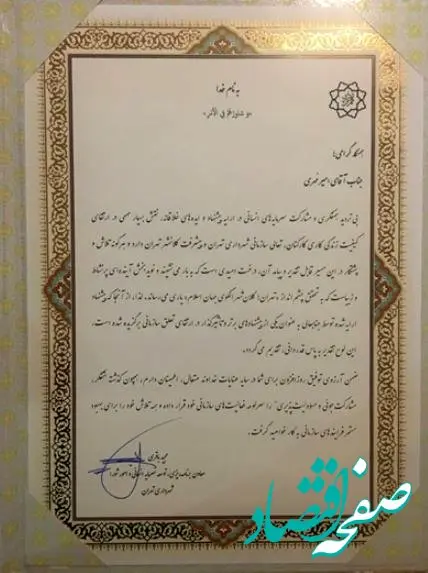 به نام خدا
«و شاورهم فی الأمر»
همکار گرامی؛
جناب آقای امیر مهری
بی تردید همفکری و مشارکت سرمایه‌های انسانی در ارایه پیشنهاد و ایده‌های خلاقانه، نقش بسیار مهمی در ارتقای
کیفیت زندگی کاری کارکنان، تعالی سازمانی شهرداری تهران و پیشرفت کلانشهر تهران دارد و هرگونه تلاش و
پشتکار در این مسیر قابل تقدیر و بمثابه آن، درخت امیدی است که به بار می‌نشیند و نوید بخش آینده‌ای پرنشاط
و زیباست که به تحقق چشم انداز «تهران کلان شهر الگوی جهان اسلام» یاری می‌رساند. لذا، از آنجا که پیشنهاد
ارایه شده توسط جنابعالی به عنوان یکی از پیشنهادهای برتر و تاثیرگذار در ارتقای تعلق سازمانی برگزیده شده است،
این لوح تقدیر به پاس قدردانی، تقدیم می‌گردد.
ضمن آرزوی توفیق روزافزون برای شما در سایه عنایات خداوند متعال، اطمینان دارم، همچون گذشته تفکر،
مشارکت جویی و مسؤولیت پذیری" را سرلوحه فعالیت‌های سازمانی خود قرار داده و همه تلاش خود را برای بهبود
مستمر فرایندهای سازمانی به کار خواهید گرفت.
مجید باقری
معاون برنامه ریزی، توسعه سرمایه انسانی و امور شورا
شهرداری تهران
صفحه اقتصاد